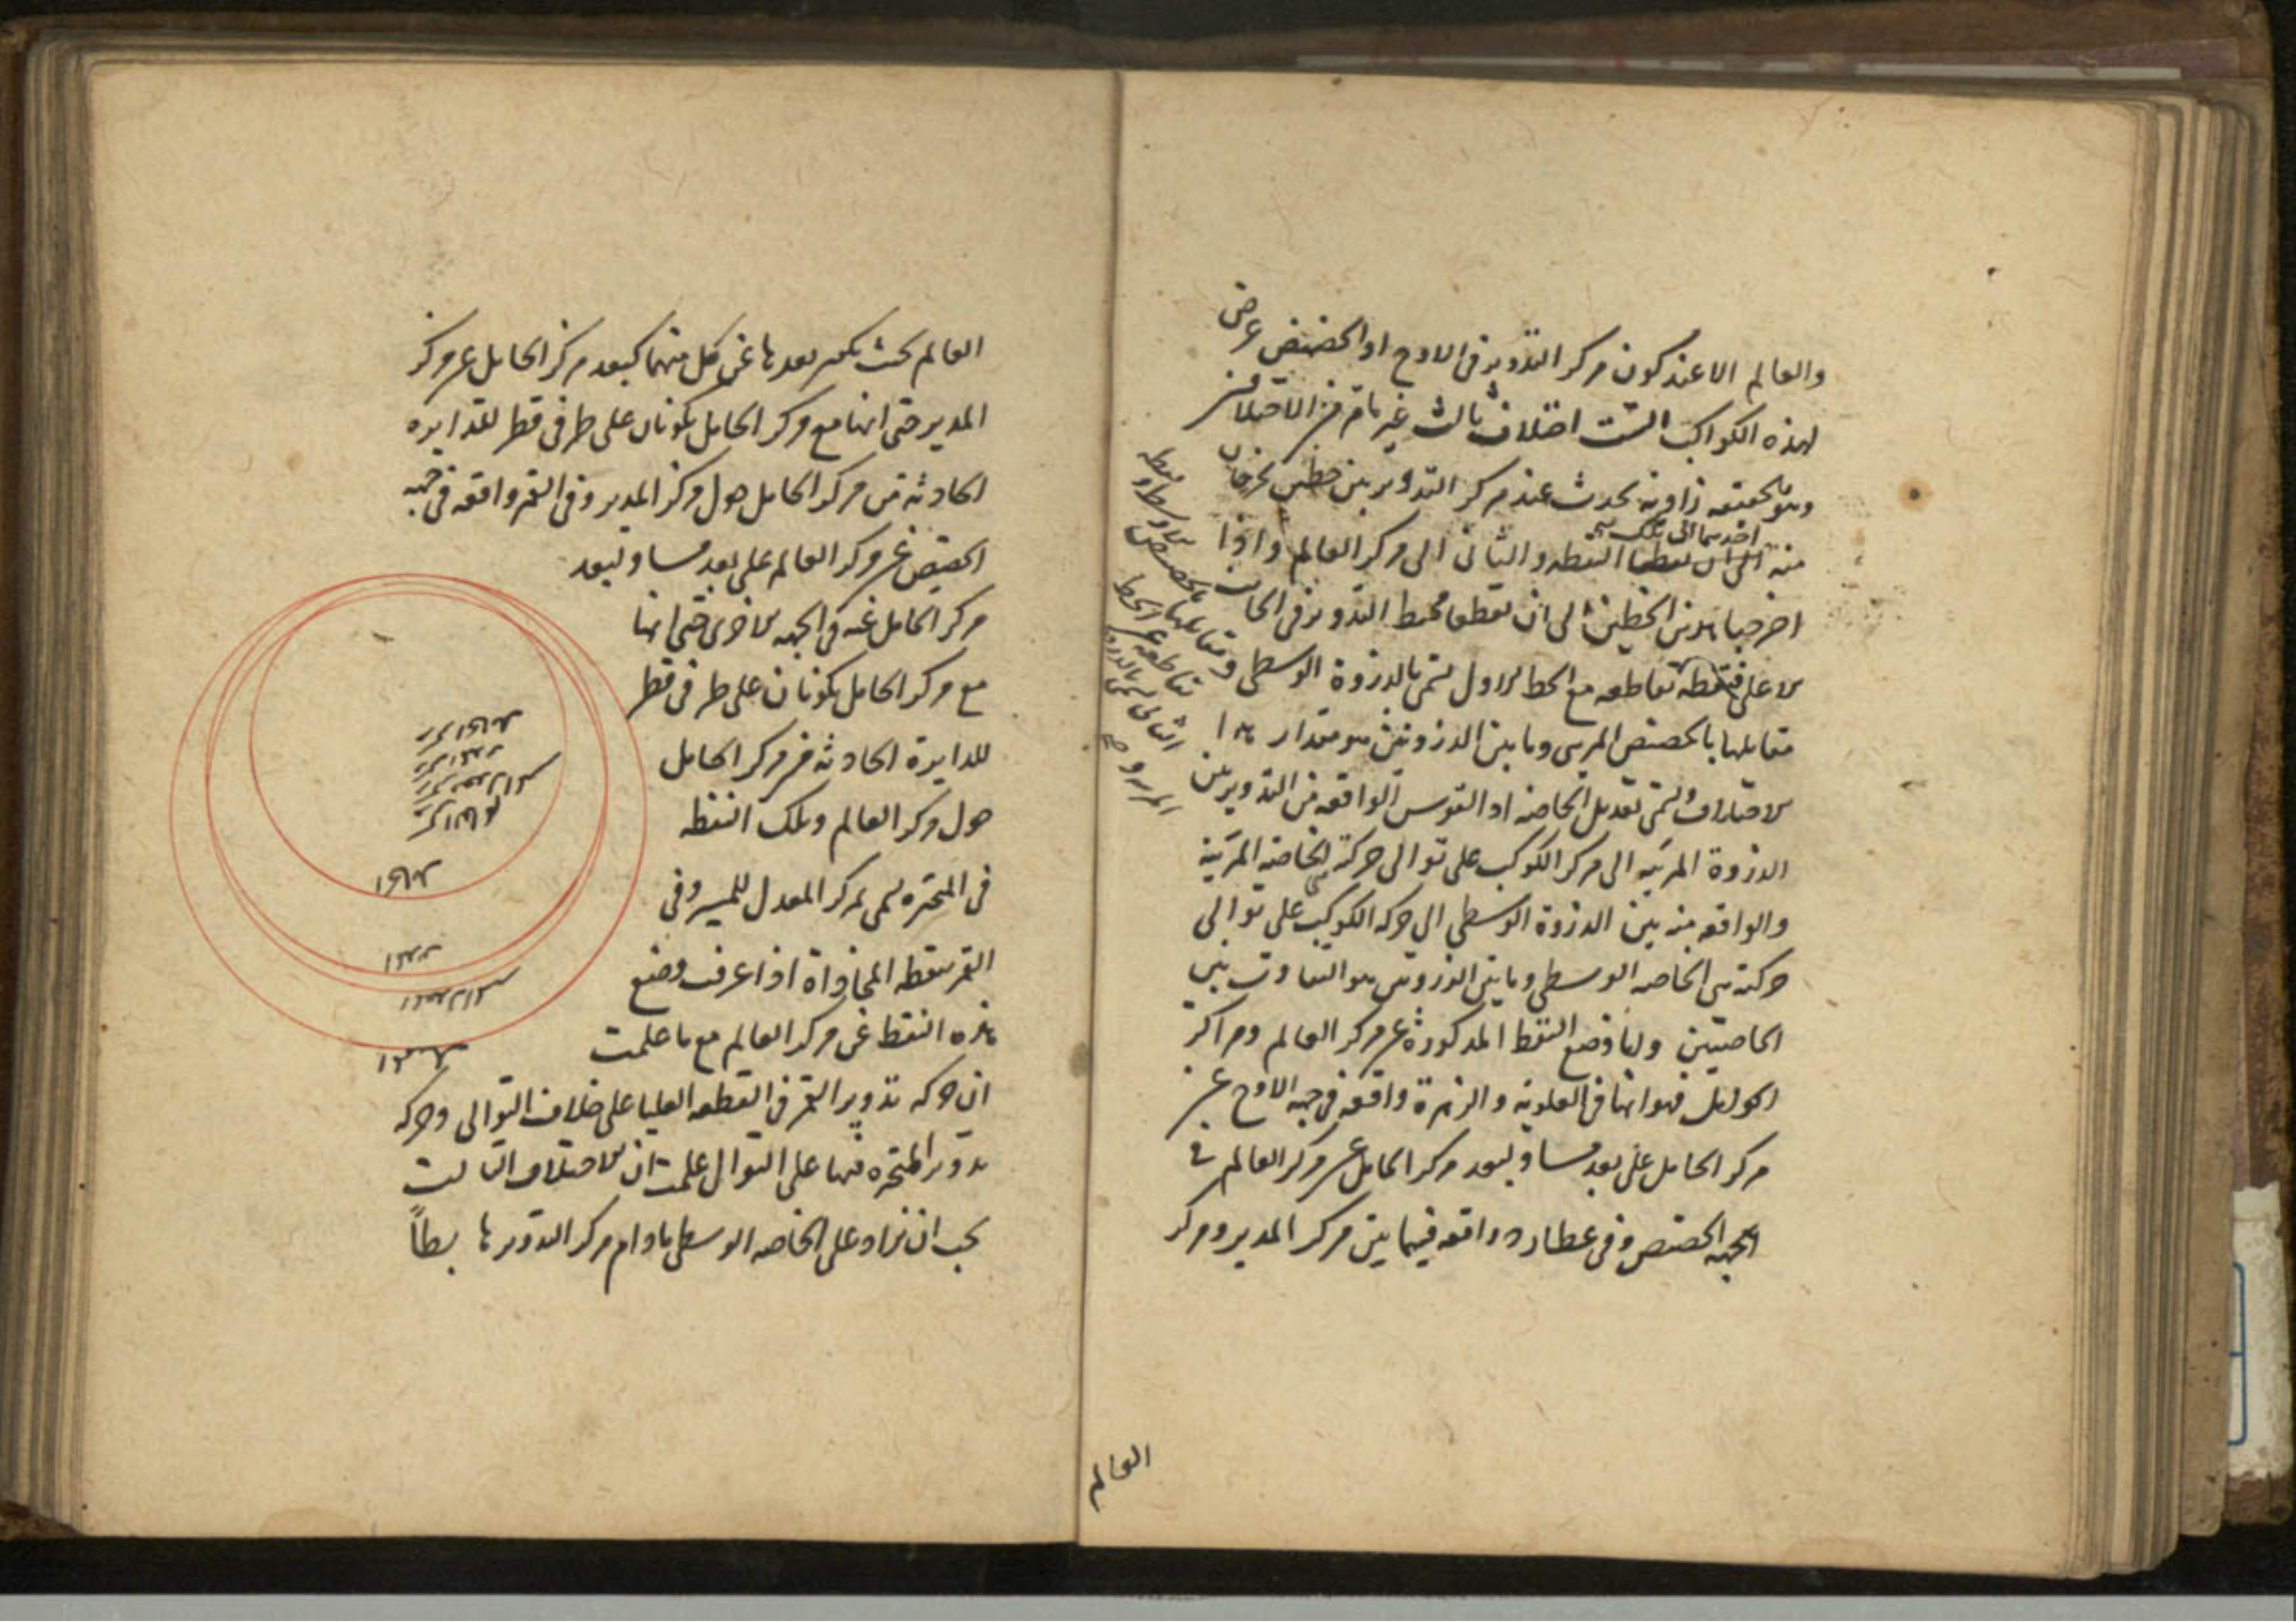 والعالم الا عند كون مركز التدوير فى الاوج او الحضيض عرض
لهذه الكواكب الستة اختلاف ثالث غير ما مر من الاختلافين
وهو بحقيقه زاوية تحدث عند مركز التدوير بين خطين يخرجان
احدهما الى تلك
منه النقطه والثانى الى مركز العالم واذا
اخرجنا هذين الخطين الى ان يقطعا محيط التدوير فى الجانب
الاعلى فنقطه تقاطعه مع الخط الاول تسمى بالذروة الوسطى و
مقابلها بالحضيض المرئى وما بين الذروتين هو مقدار هذا
الاختلاف وتسمى تعديل الخاصه اذ القوس الواقعه من التدوير بين
الذروة المرئيه الى مركز الكوكب على توالى حركة الخاصه المرئية
والواقعه منه بين الذروة الوسطى الى مركز الكوكب على توالى
حركته هى الخاصه الوسطى وما بين الذروتين هو التفاوت بين
الخاصتين واما وضع النقط المذكورة عن مركز العالم ومراكز
الحوامل فهو انها فى العلوية والزهرة واقعه فى جهه الاوج عن
مركز الحامل على بعد مساو لبعد مركز الحامل عن مركز العالم فى
الجهه الحضيض وفى عطارد واقعه فيما بين مركز المدير ومركز
نقطه
الاوسط و
مقابلها بالحضيض
تقاطعه مع الخط
الثانى تسمى بالذروة
المرئيه و
العالم
العالم بحيث يكون بعدها عن كل منهما كبعد مركز الحامل عن مركز
المدير حتى انها مع مركز الحامل يكونان على طرفى قطر للدايره
الحادثه من مركز الحامل حول مركز المدير وفى القمر واقعه فى جهه
الحضيض عن مركز العالم على بعد مساو لبعد
مركز الحامل عنه فى الجهه الاخرى حتى انها
مع مركز الحامل يكونان على طرفى قطر
للدايرة الحادثه من مركز الحامل
حول مركز العالم وتلك النقطه
فى المتحيره تسمى بمركز المعدل للمسير وفى
القمر بنقطه المحاذاة اذا عرفت وضع
هذه النقط عن مركز العالم مع ما علمت
ان حركه تدوير القمر فى القطعه العليا على خلاف التوالى وحركه
تدوير المتحيره فيها على التوالى علمت ان الاختلاف الثالث
يجب ان يزاد على الخاصه الوسطى مادام مركز التدوير هابطاً
مركز الحامل
مركز المدير
مركز معدل المسير
مركز العالم
الحامل
المدير
معدل المسير
الممثل